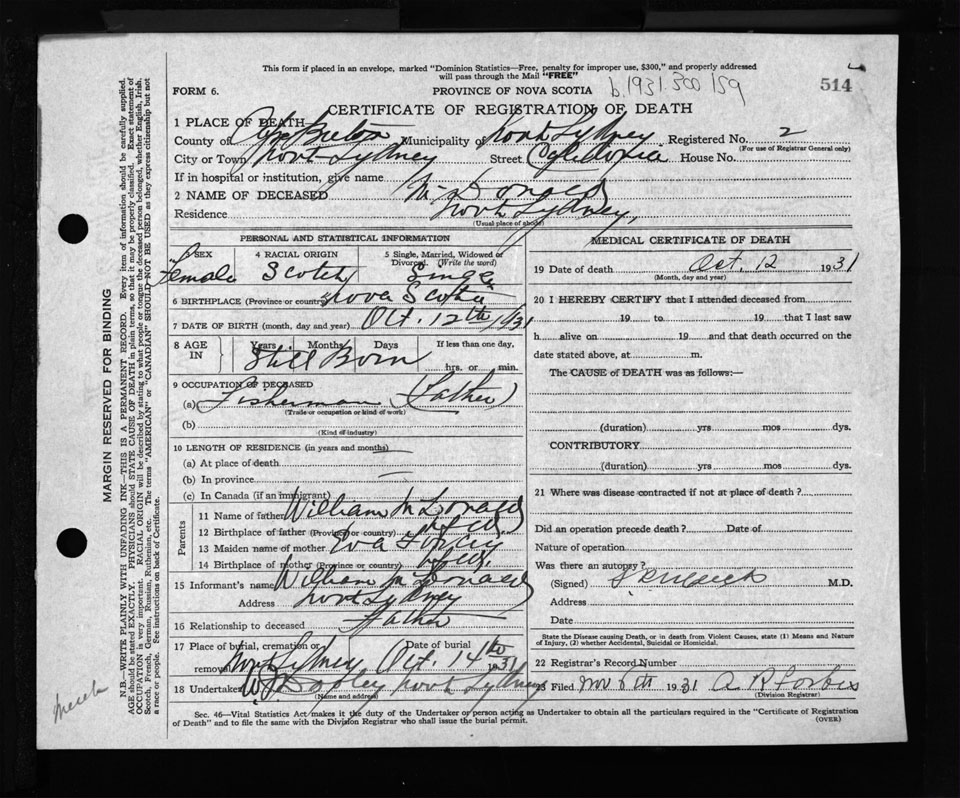 This form if placed in an envelope, marked "Dominion Statistics—Free, penalty for improper use, $300," and properly addressed
will pass through the Mail "FREE"
FORM 6.
PROVINCE OF NOVA SCOTIA
b.1931.300 159
514
CERTIFICATE OF REGISTRATION OF DEATH
1 PLACE OF DEATH
County of Cape Breton Municipality of North Sydney Registered No. 2
(For use of Registrar General only)
City or Town North Sydney Street Caledonia House No.
If in hospital or institution, give name
2 NAME OF DECEASED McDonald
Residence North Sydney,
(Usual place of abode)
PERSONAL AND STATISTICAL INFORMATION
SEX Female
4 RACIAL ORIGIN Scotch
5 Single, Married, Widowed or Divorced. (Write the word) Single
6 BIRTHPLACE (Province or country) Nova Scotia
7 DATE OF BIRTH (month, day and year) Oct. 12th, 1931
8 AGE IN Years Months Days If less than one day,
Still Born hrs. or min.
9 OCCUPATION OF DECEASED
(a) Fisherman (Father)
(Trade or occupation or kind of work)
(b)
(Kind of industry)
10 LENGTH OF RESIDENCE (in years and months)
(a) At place of death
(b) In province
(c) In Canada (if an immigrant)
Parents
11 Name of father William McDonald
12 Birthplace of father (Province or country) Nfld.
13 Maiden name of mother Eva
14 Birthplace of mother (Province or country) Nfld.
15 Informant's name William McDonald
Address North Sydney
16 Relationship to deceased Father
17 Place of burial, cremation or removal North Sydney Date of burial Oct. 14th 1931
18 Undertaker W J Dooley North Sydney
MEDICAL CERTIFICATE OF DEATH
19 Date of death Oct. 12 1931
(Month, day and year)
20 I HEREBY CERTIFY that I attended deceased from
19 to 19 that I last saw
h alive on 19 and that death occurred on the
date stated above, at m.
The CAUSE of DEATH was as follows:—
(duration) yrs mos. dys.
CONTRIBUTORY
(duration) yrs. mos. dys.
21 Where was disease contracted if not at place of death?
Did an operation precede death? Date of
Nature of operation
Was there an autopsy?
(Signed) M.D.
Address
Date
State the Disease causing Death, or in death from Violent Causes, state (1) Means and Nature
of Injury, (2) whether Accidental, Suicidal or Homicidal.
22 Registrar's Record Number
23 Filed Nov 6th 1931 A. R. Forbes
(Division Registrar)
Sec. 46—Vital Statistics Act makes it the duty of the Undertaker or person acting as Undertaker to obtain all the particulars required in the "Certificate of Registration
of Death" and to file the same with the Division Registrar who shall issue the burial permit.
(OVER)
MARGIN RESERVED FOR BINDING
N.B.—WRITE PLAINLY WITH UNFADING INK—THIS IS A PERMANENT RECORD. Every item of information should be carefully supplied.
AGE should be stated EXACTLY. PHYSICIANS should STATE CAUSE OF DEATH in plain terms, so that it may be properly classified. Exact statement of
OCCUPATION is very important. RACIAL ORIGIN will be described by stating to what people or tongue the deceased person belonged, whether English, Irish,
Scotch, French, German, Russian, Ruthenian, etc. The terms "AMERICAN" or "CANADIAN" SHOULD NOT BE USED as they express citizenship but not
a race or people. See instructions on back of Certificate.